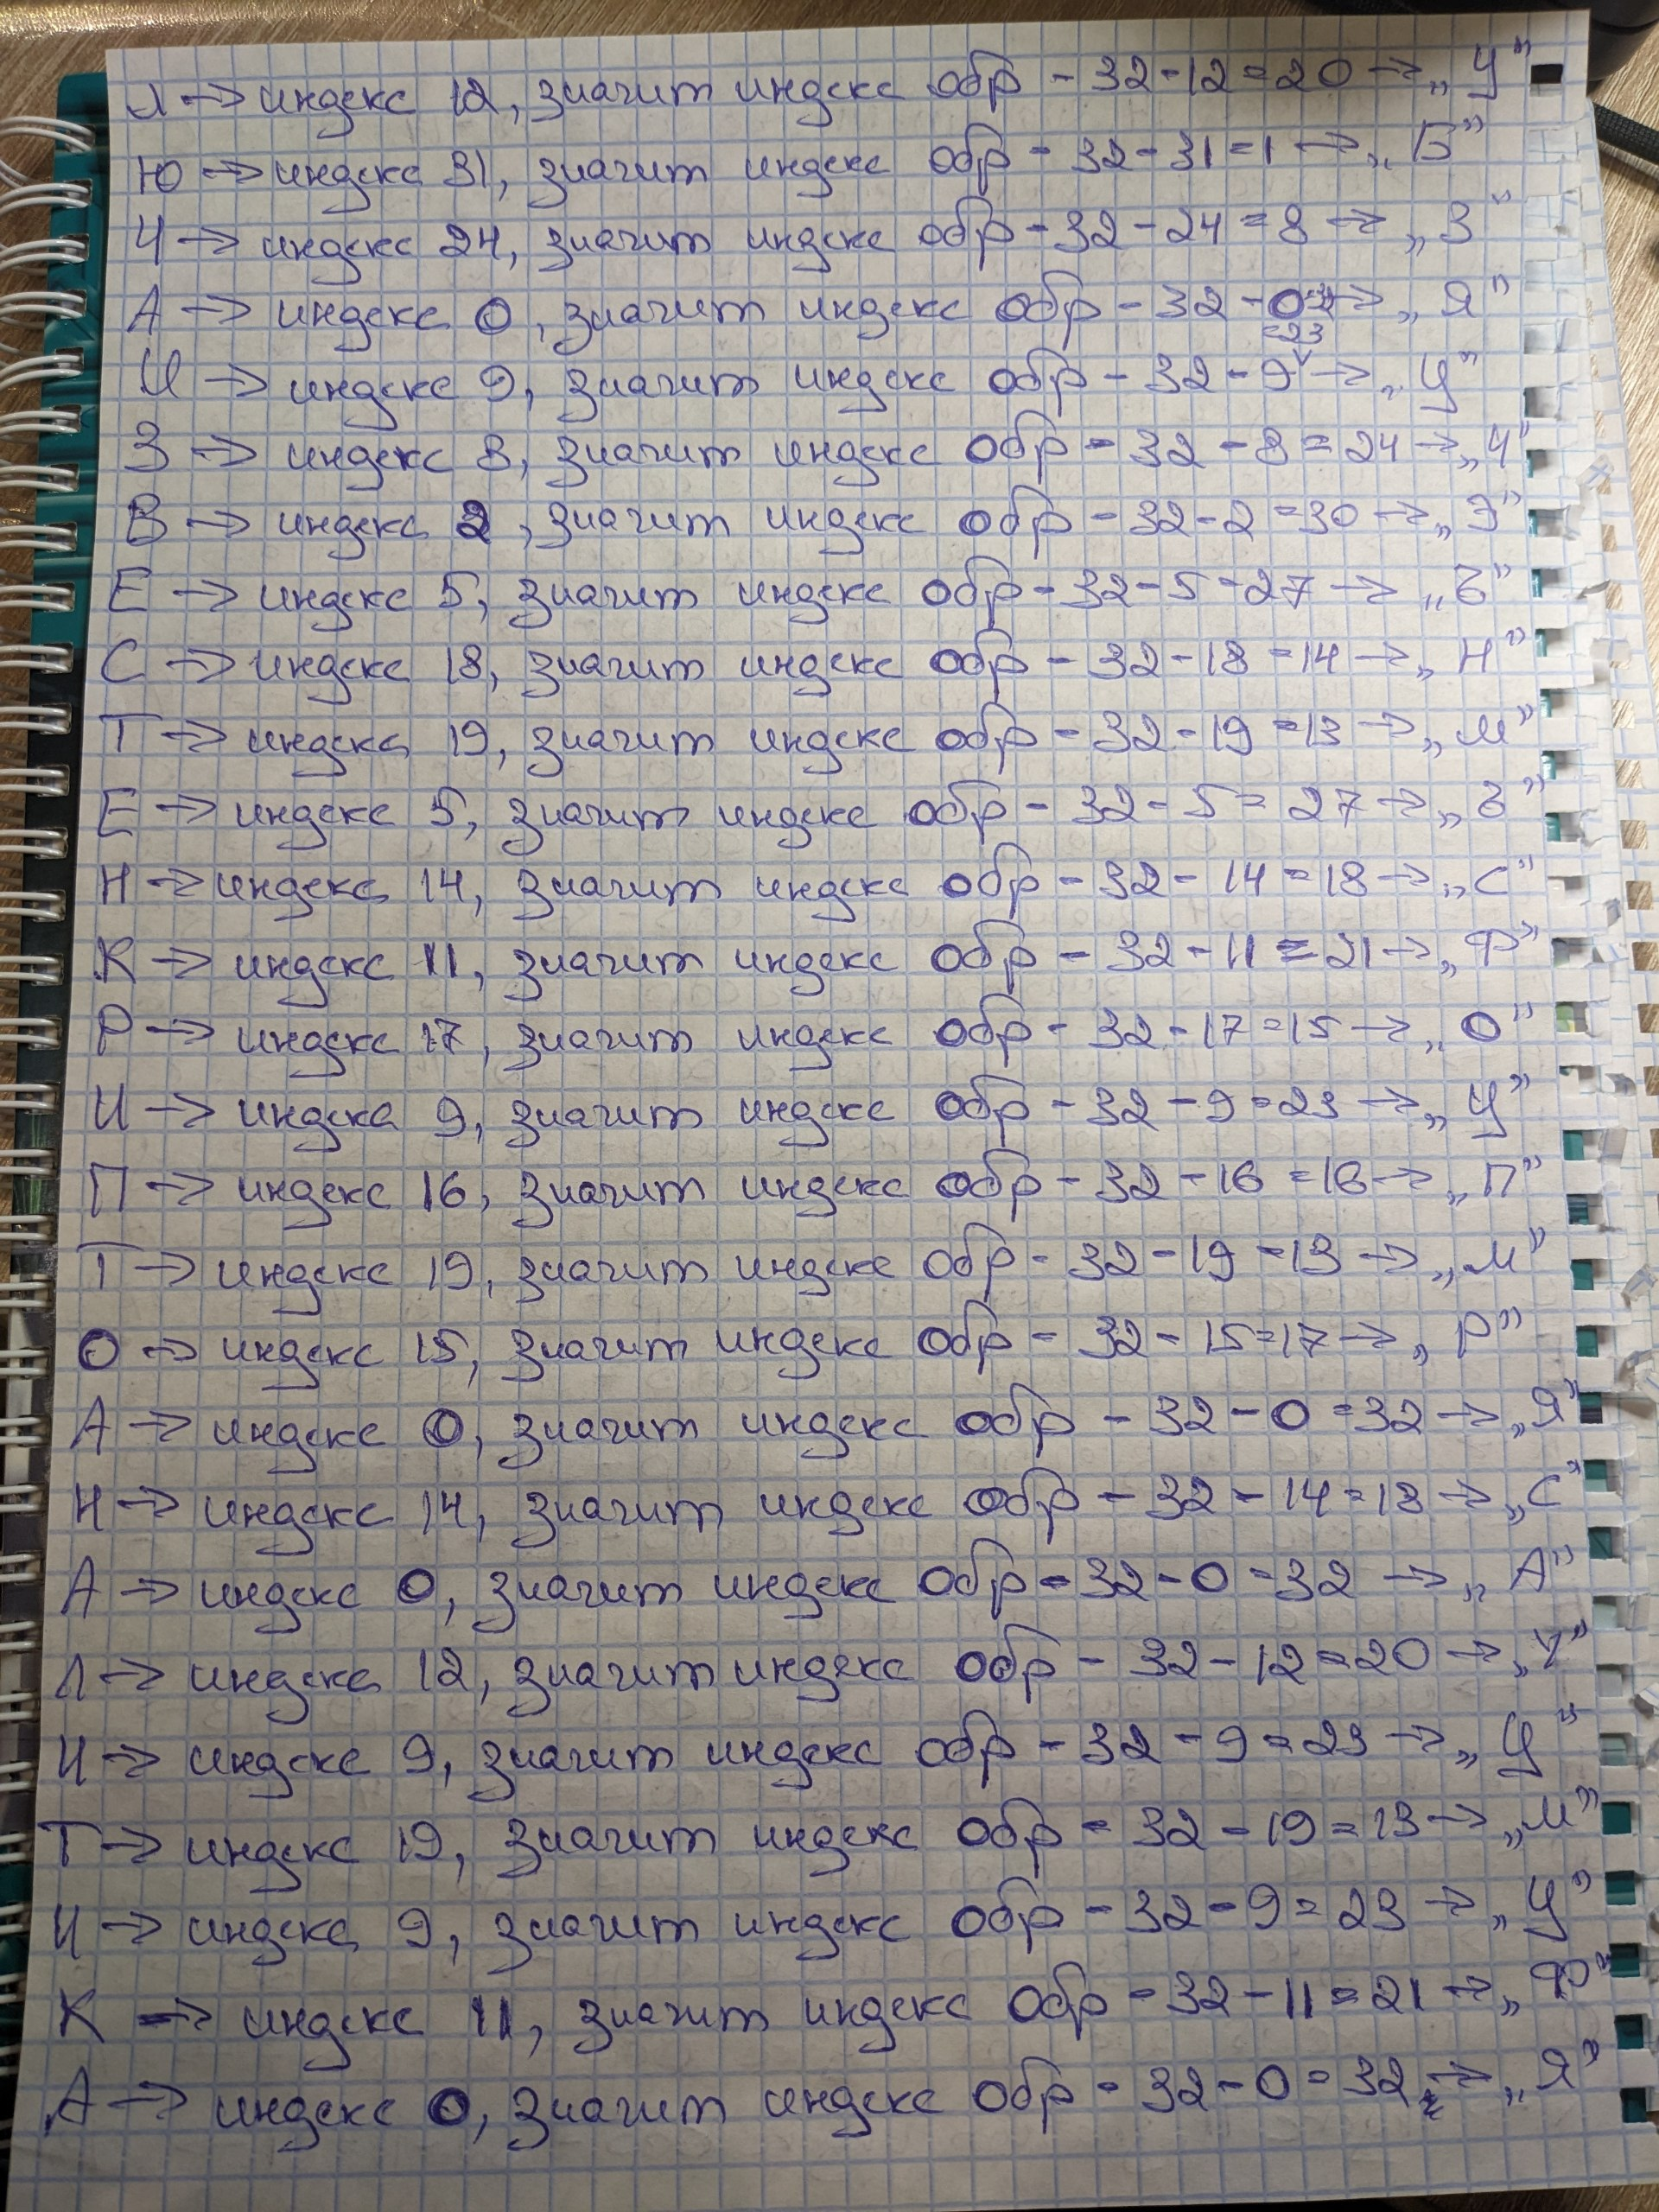 Л → индекс 12, значит индекс обр - 32-12=20 → „У”
Ю → индекс 31, значит индекс обр - 32-31=1 → „Б”
Ч → индекс 24, значит индекс обр - 32-24=8 → „З”
А → индекс 0, значит индекс обр - 32-0 → „Я”
И → индекс 9, значит индекс обр - 32-9 =23 → „Ц”
З → индекс 8, значит индекс обр - 32-8=24 → „Ч”
В → индекс 2, значит индекс обр - 32-2=30 → „Э”
Е → индекс 5, значит индекс обр - 32-5=27 → „Ъ”
С → индекс 18, значит индекс обр - 32-18=14 → „Н”
Т → индекс 19, значит индекс обр - 32-19=13 → „М”
Е → индекс 5, значит индекс обр - 32-5=27 → „Ъ”
Н → индекс 14, значит индекс обр - 32-14=18 → „С”
К → индекс 11, значит индекс обр - 32-11=21 → „Ф”
Р → индекс 17, значит индекс обр - 32-17=15 → „О”
И → индекс 9, значит индекс обр - 32-9=23 → „Ц”
П → индекс 16, значит индекс обр - 32-16=16 → „П”
Т → индекс 19, значит индекс обр - 32-19=13 → „М”
О → индекс 15, значит индекс обр - 32-15=17 → „Р”
А → индекс 0, значит индекс обр - 32-0=32 → „Я”
Н → индекс 14, значит индекс обр - 32-14=18 → „С”
А → индекс 0, значит индекс обр - 32-0=32 → „А”
Л → индекс 12, значит индекс обр - 32-12=20 → „У”
И → индекс 9, значит индекс обр - 32-9=23 → „Ц”
Т → индекс 19, значит индекс обр - 32-19=13 → „М”
И → индекс 9, значит индекс обр - 32-9=23 → „Ц”
К → индекс 11, значит индекс обр - 32-11=21 → „Ф”
А → индекс 0, значит индекс обр - 32-0=32 → „Я”